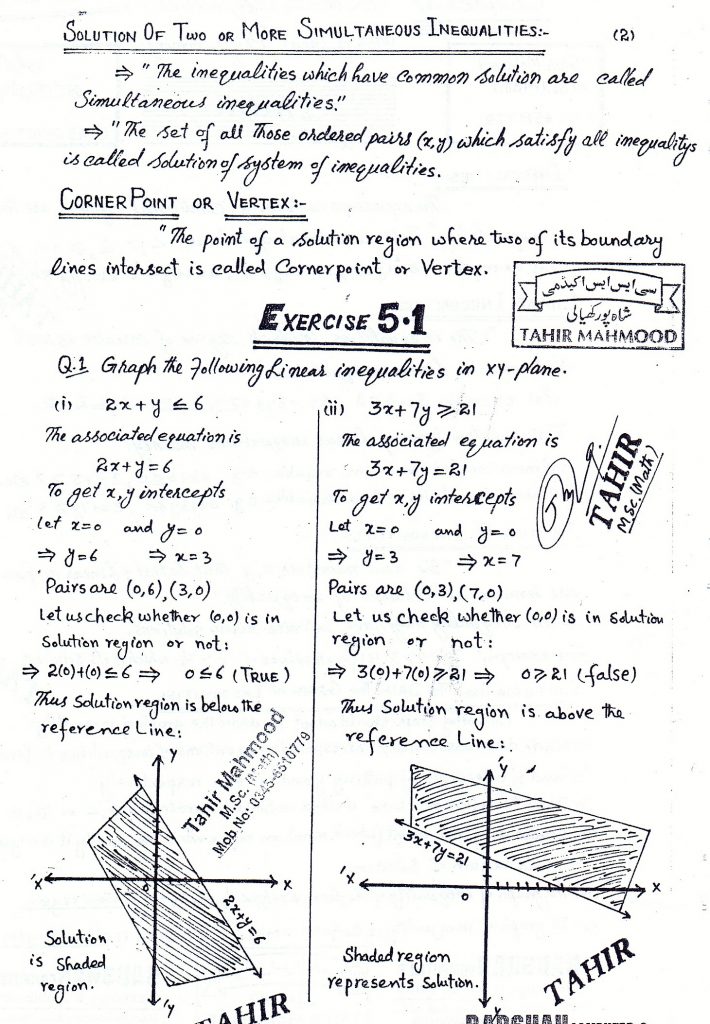 SOLUTION OF TWO OR MORE SIMULTANEOUS INEQUALITIES:- (2)
⇒ "The inequalities which have common solution are called
Simultaneous inequalities."
⇒ "The set of all those ordered pairs (x,y) which satisfy all inequalitys
is called solution of system of inequalities.
CORNER POINT OR VERTEX:-
"The point of a solution region where two of its boundary
lines intersect is called Cornerpoint or Vertex.
سی ایس ایس اکیڈمی
شاہ پور کھیالی
TAHIR MAHMOOD
EXERCISE 5.1
Q.1 Graph the Following Linear inequalities in xy-plane.
(i) 2x+y ≤ 6
The associated equation is
2x+y=6
To get x,y intercepts
Let x=0 and y=0
⇒ y=6 ⇒ x=3
Pairs are (0,6),(3,0)
Let us check whether (0,0) is in
Solution region or not:
⇒ 2(0)+(0)≤6 ⇒ 0≤6 (TRUE)
Thus Solution region is below the
reference Line:
Y
'X
X
0
2x+y=6
'Y
Solution
is Shaded
region.
Tahir Mahmood
M.Sc. (Math)
Mob No: 0345-6510779
TAHIR
(ii) 3x+7y ≥ 21
The associated equation is
3x+7y=21
To get x,y intercepts
Let x=0 and y=0
⇒ y=3 ⇒ x=7
Pairs are (0,3),(7,0)
Let us check whether (0,0) is in solution
region or not:
⇒ 3(0)+7(0)≥21 ⇒ 0≥21 (false)
Thus Solution region is above the
reference Line:
TAHIR
M.SC.(Math)
'Y
3x+7y=21
'X
X
0
Shaded region
represents Solution.
'Y
TAHIR